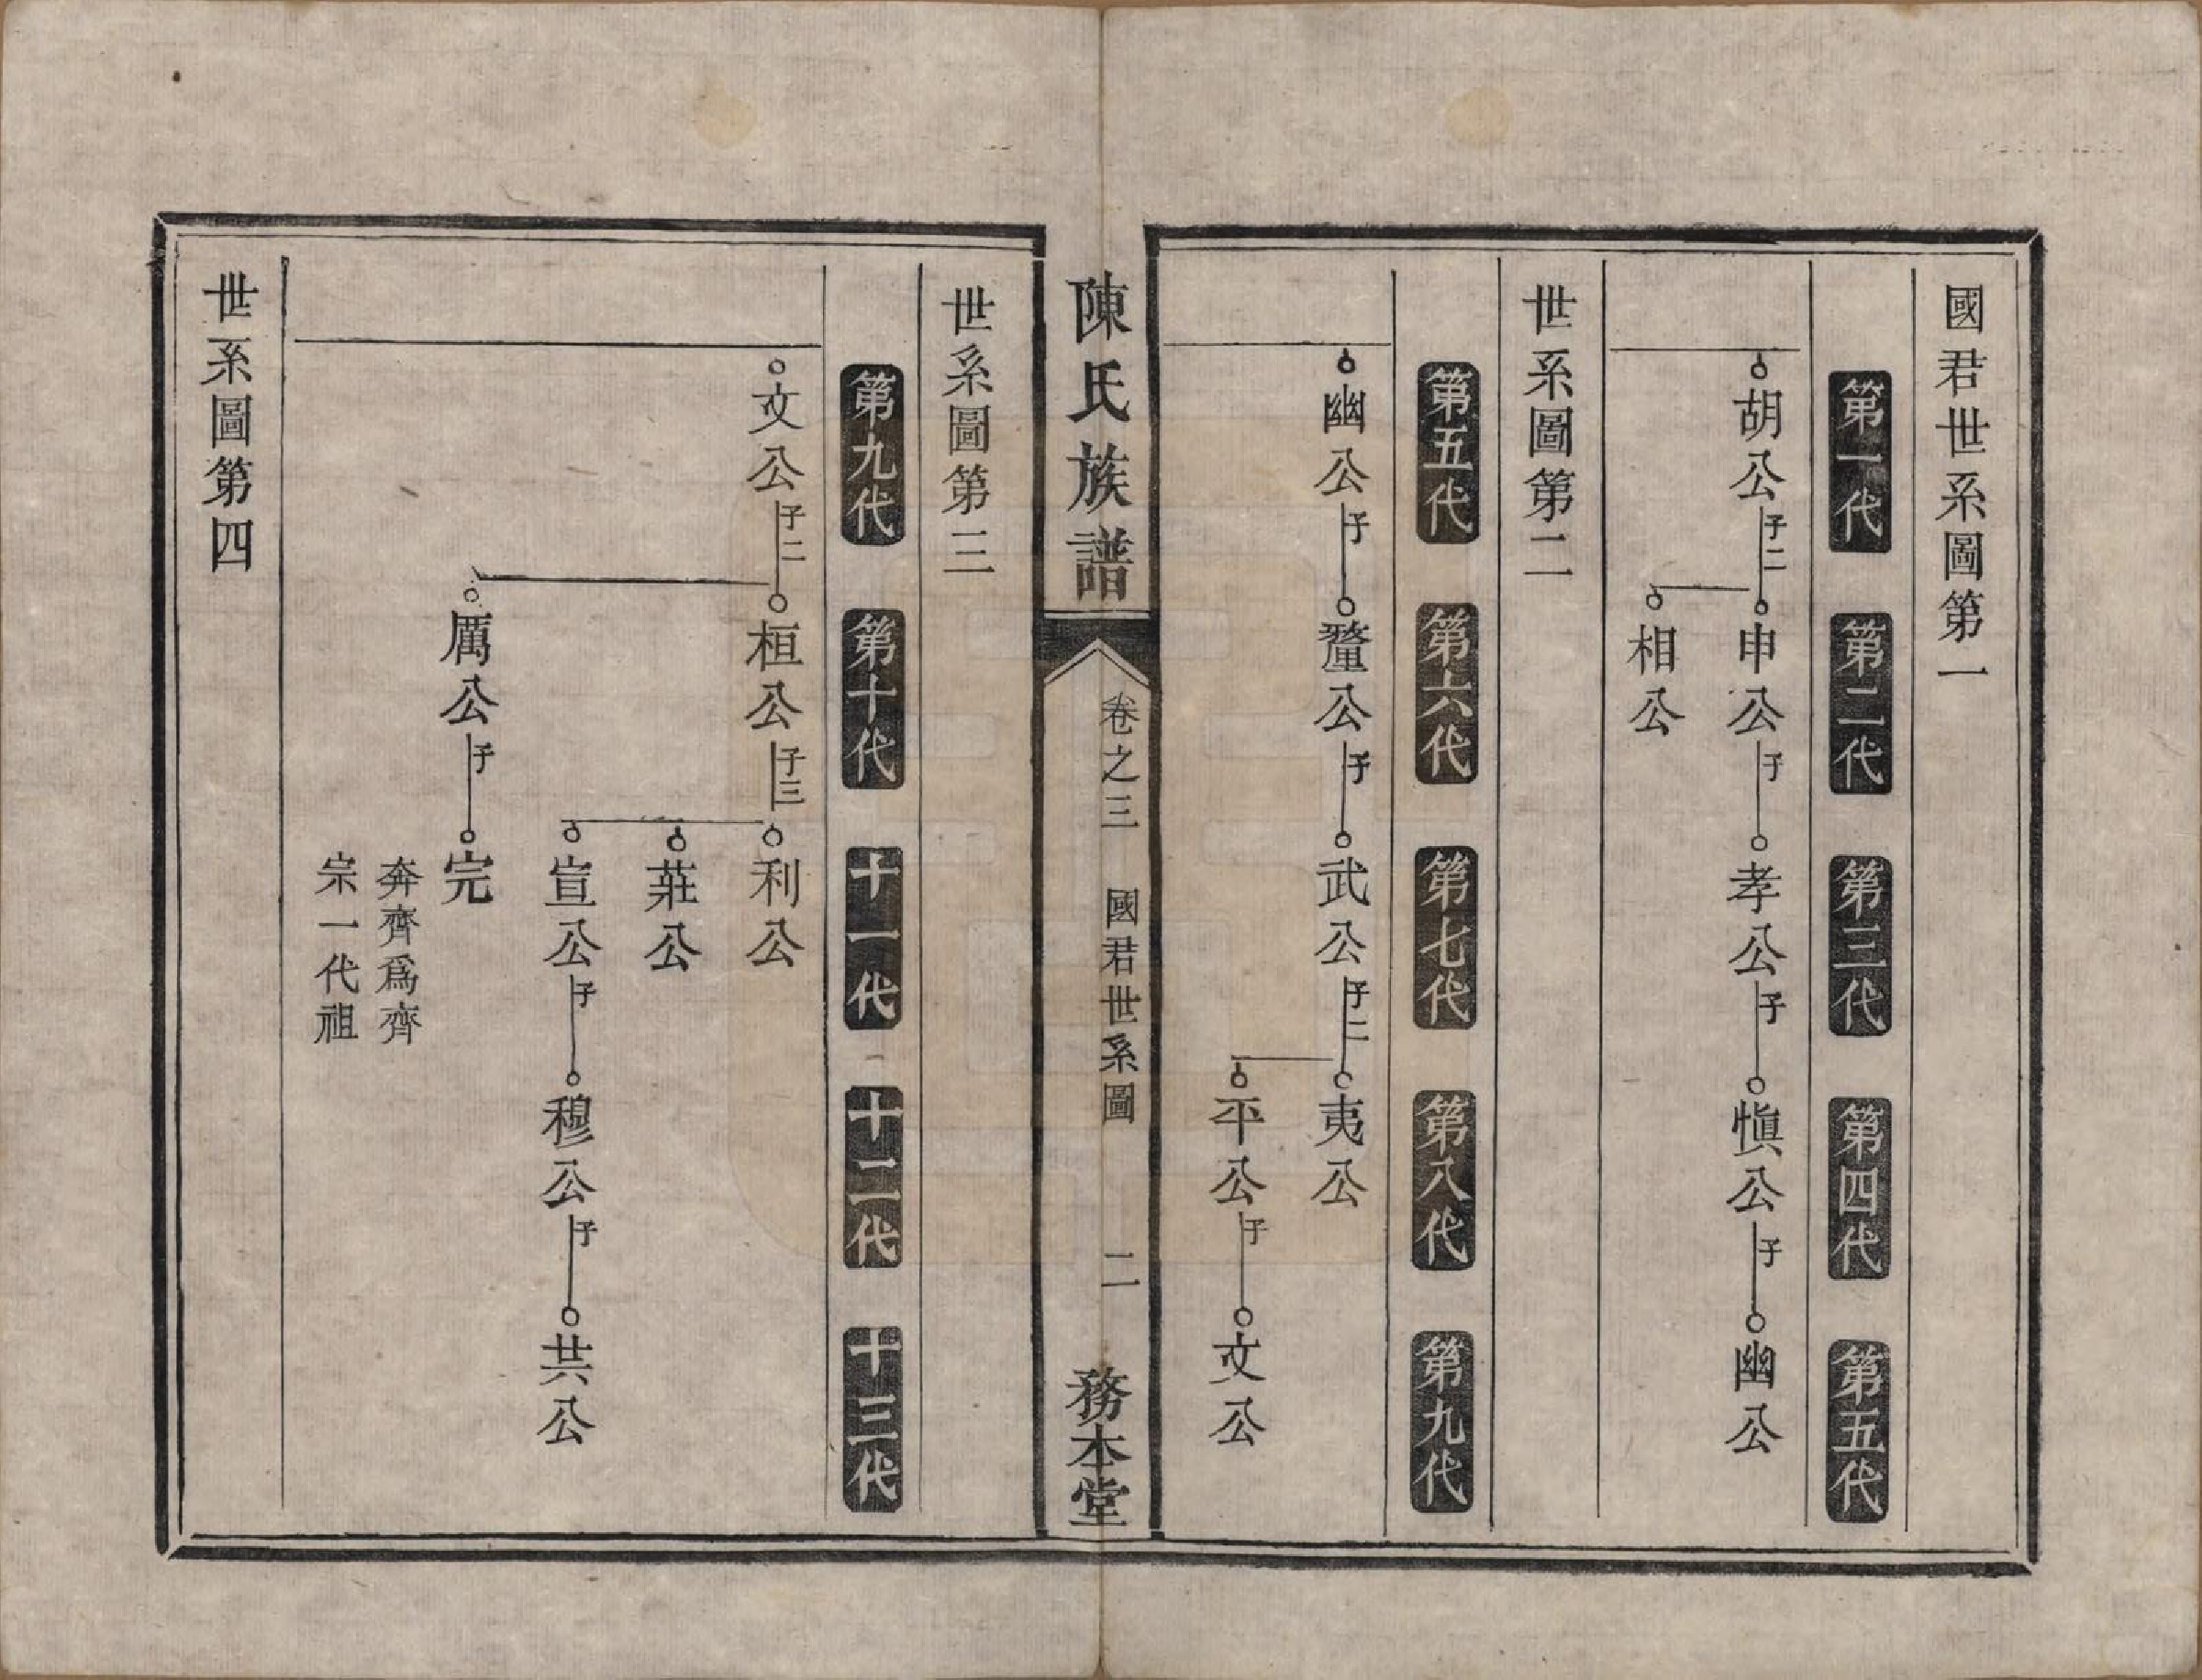 國君世系圖第一
第一代 第二代 第三代 第四代 第五代
胡公 子二 申公 子 孝公 子 愼公 子 幽公
相公
世系圖第二
第五代 第六代 第七代 第八代 第九代
幽公 子 釐公 子 武公 子二 夷公
平公 子 文公
陳氏族譜 卷之三 國君世系圖 二 務本堂
世系圖第三
第九代 第十代 十一代 十二代 十三代
文公 子二 桓公 子三 利公
莊公
宣公 子 穆公 子 共公
厲公 子 完
奔齊爲齊
宗一代祖
世系圖第四